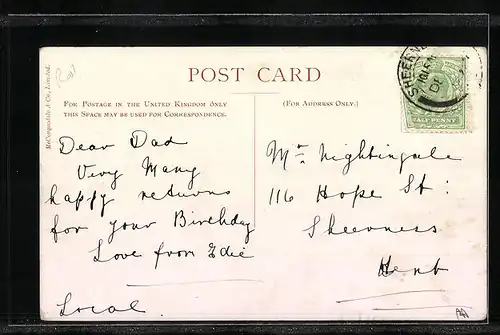 POST CARD
McCorquodale & Co., Limited.
FOR POSTAGE IN THE UNITED KINGDOM ONLY
THIS SPACE MAY BE USED FOR CORRESPONDENCE.
(FOR ADDRESS ONLY.)
SHEERNE
HALF PENNY
Dear Dad
Very Many
happy returns
for your Birthday
Love from Edie
Local.
Mr Nightingale
116 Hope St:
Sheerness
Kent